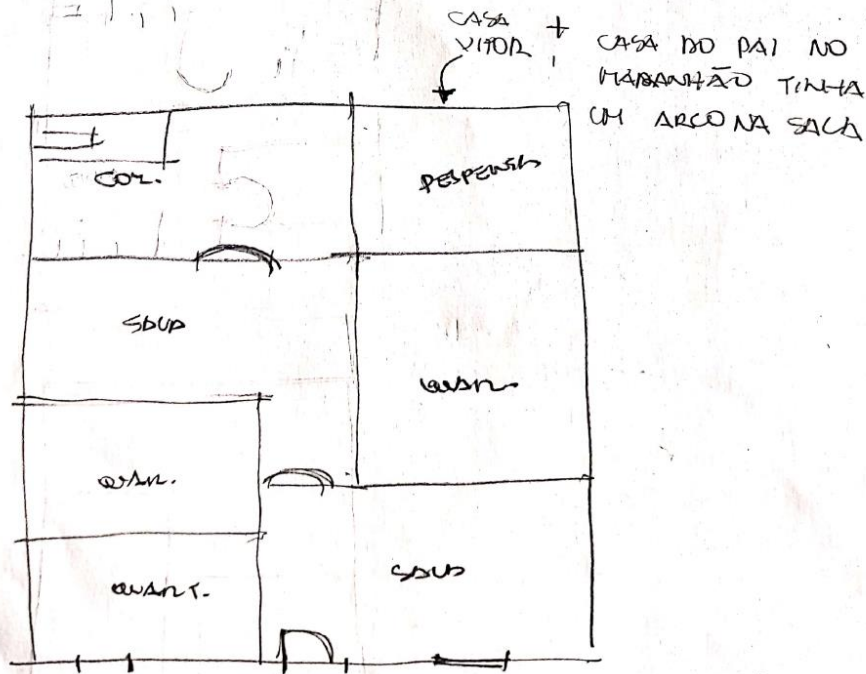 CASA
VITOR
+ CASA DO PAI NO
MARANHÃO TINHA
UM ARCO NA SALA
COZ.
DESPENSA
SALA
QUAR.
QUAR.
QUART.
SALA